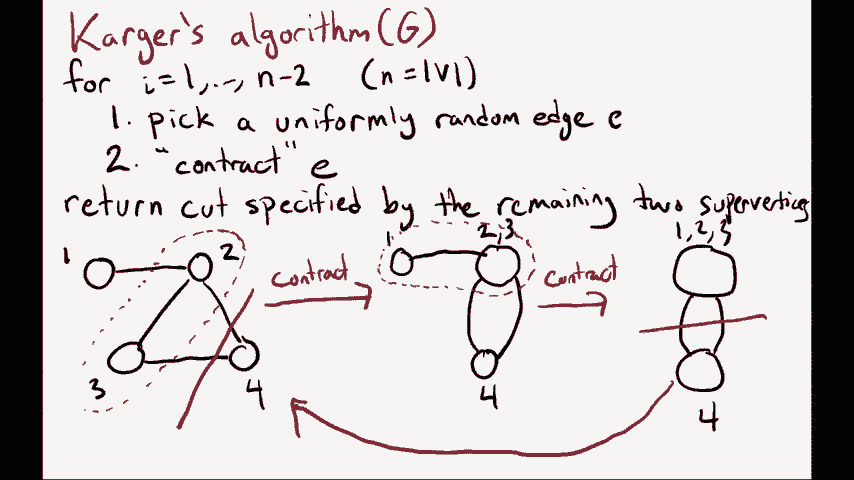 Karger's algorithm(G)
for i=1,..., n-2 (n=|V|)
1. pick a uniformly random edge e
2. "contract" e
return cut specified by the remaining two supervertices
1 2 3 4
Contract
1 2,3 4
Contract
1,2,3 4